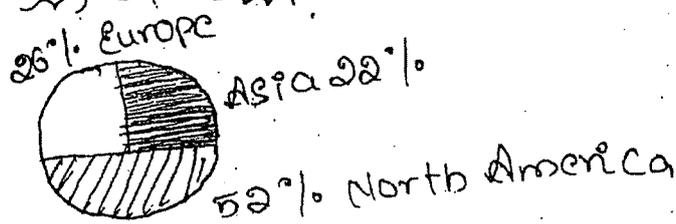 26% Europe
Asia 22%
52% North America